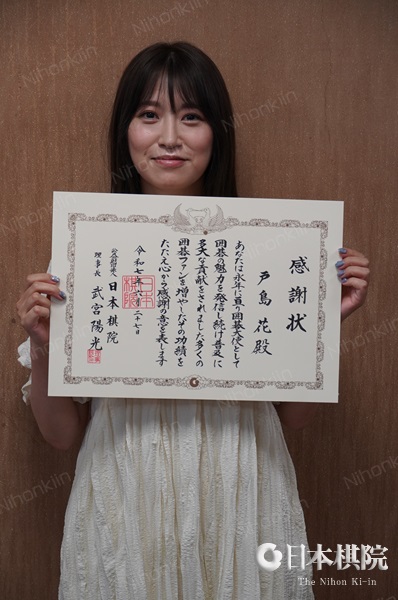 感謝状
戸島 花 殿
あなたは永年に亘り囲碁大使として
囲碁の魅力を発信し続け普及に
多大な貢献をされました多くの
囲碁ファンを増やしたその功績を
たたえ心から感謝の意を表します
令和七年六月二十七日
公益財団法人 日本棋院
理事長 武宮陽光
日本棋院
The Nihon Ki-in
Nihonkiin